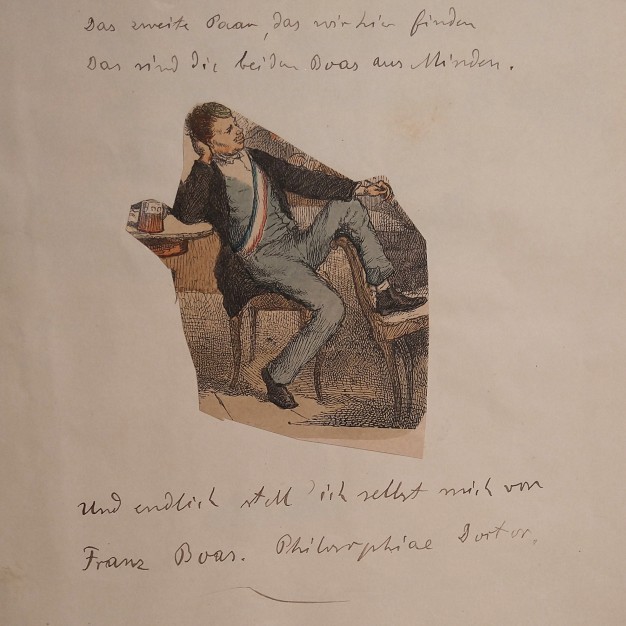 Das zweite Paar, das wir hier finden
Das sind die beiden Boas aus Minden.
Und endlich stell' ich selbst mich vor
Franz Boas. Philosophiae Doctor.